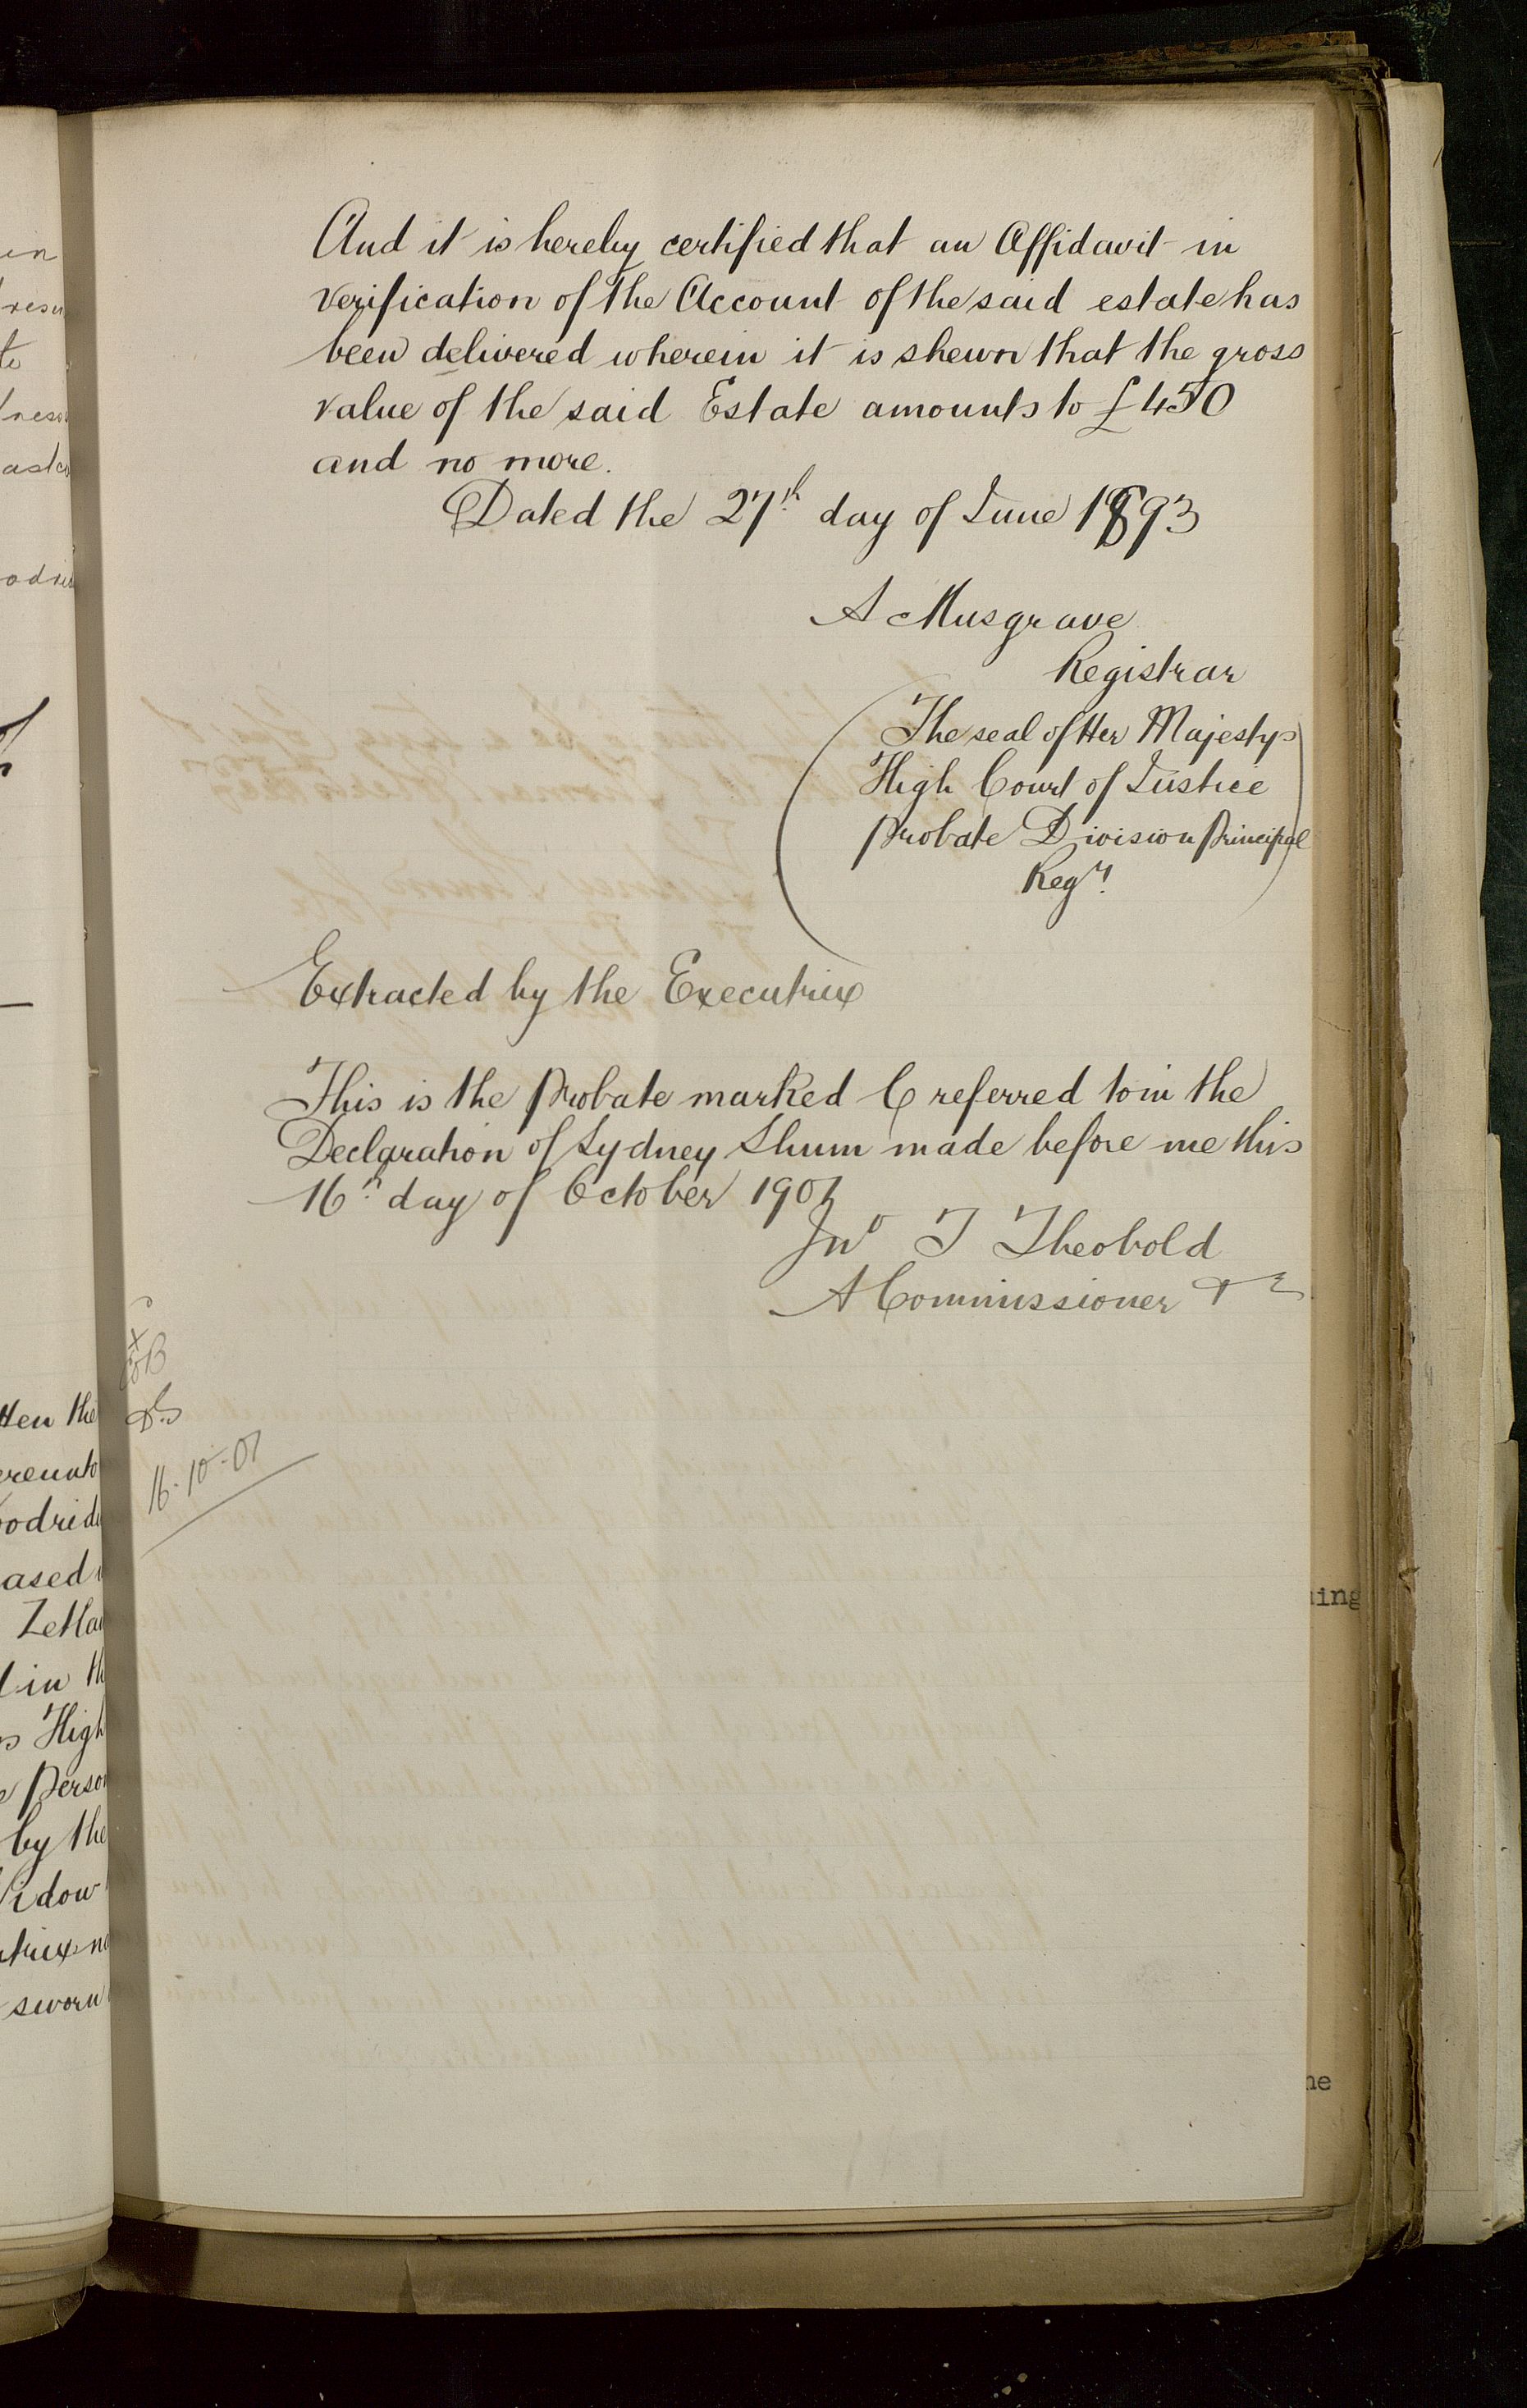 And it is hereby certified that an Affidavit in
verification of the Account of the said estate has
been delivered wherein it is shewn that the gross
value of the said Estate amounts to £450
and no more.
Dated the 27th day of June 1893
A Musgrave
Registrar
The seal of Her Majestys
High Court of Justice
Probate Division Principal
Regy.
Extracted by the Executrix
This is the Probate marked C referred to in the
Declaration of Sydney Shum made before me this
16th day of October 1901
Jno T Theobold
A Commissioner &c
16-10-01
tten the
ereunto
oodrid
ased
Zetla
in th
s High
Perso
by the
idow
trix n
sworn
ing
ne